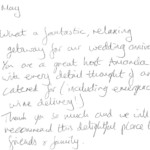 May
What a fantastic, relaxing
getaway for our wedding
You are a great host Amanda
with every detail thought of and
catered for (including emergency
wine delivery!)
Thank you so much and we will
recommend this delightful place to
friends + family